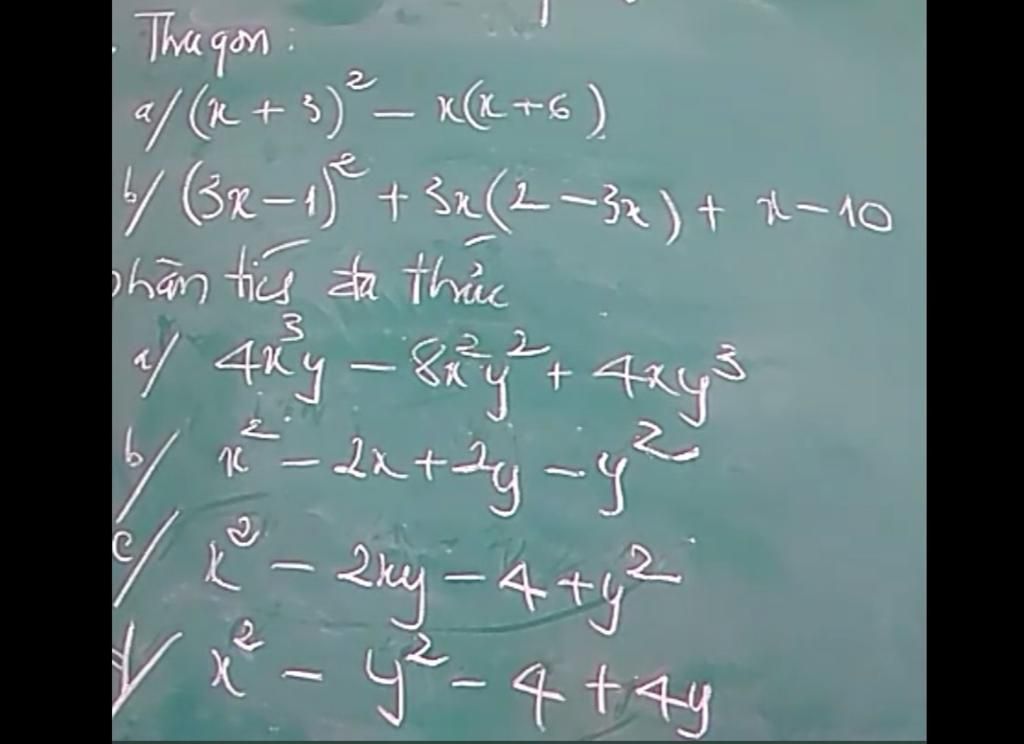 Thu gọn :
a/ (x + 3)² – x(x + 6)
b/ (3x – 1)² + 3x(2 – 3x) + x – 10
phân tích đa thức
a/ 4x³y – 8x²y² + 4xy³
b/ x² – 2x + 2y – y²
c/ x² – 2xy – 4 + y²
d/ x² – y² – 4 + 4y